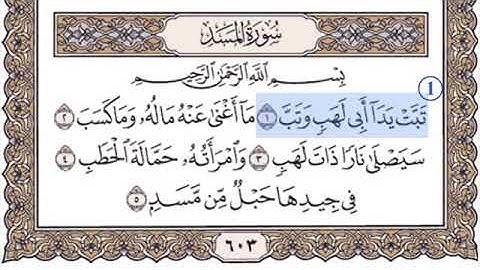 سُورَةُ المَسَدِ
بِسْمِ اللَّهِ الرَّحْمَٰنِ الرَّحِيمِ
1
تَبَّتْ يَدَآ أَبِى لَهَبٍ وَتَبَّ ١ مَآ أَغْنَىٰ عَنْهُ مَالُهُۥ وَمَا كَسَبَ ٢
سَيَصْلَىٰ نَارًا ذَاتَ لَهَبٍ ٣ وَٱمْرَأَتُهُۥ حَمَّالَةَ ٱلْحَطَبِ ٤
فِى جِيدِهَا حَبْلٌ مِّن مَّسَدٍۭ ٥
٦٠٣